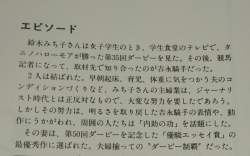 エピソード
鈴木みち子さんは女子学生のとき、学生食堂のテレビで、タ
ニノハローモアが勝った第35回ダービーを見た。その後、競馬
記者になって、取材先で知り合ったのが吉永騎手だった。
2人は結ばれた。早朝起床、育児、体重に気をつかう夫のコ
ンディションづくりなど、みち子さんの主婦業は、ジャーナリ
スト時代とは正反対なもので、大変な努力を要したであろう。
しかしその努力は、明るさを取り戻した吉永騎手の表情や、動
作にうかがわれ、周囲の人たちは「内助の功」を話題にした。
その妻は、第50回ダービーを記念した「優駿エッセイ賞」の
最優秀作に選ばれた。夫婦揃っての"ダービー制覇"だった。